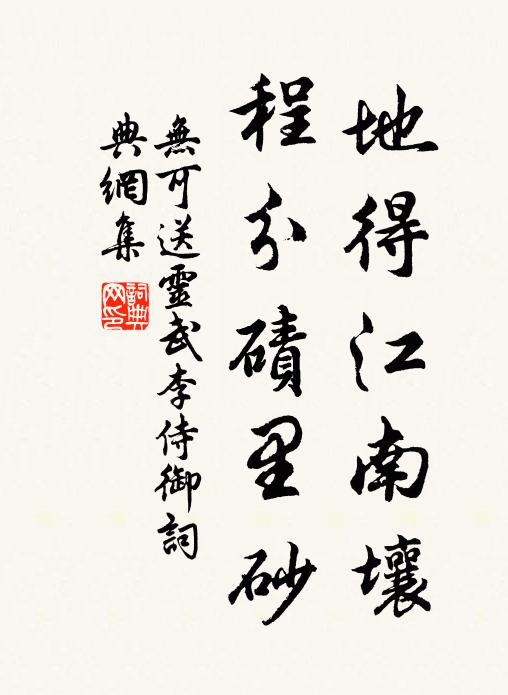 地得江南壤
程分磧里砂
無可送靈武李侍御詞
典網集
詞典網印